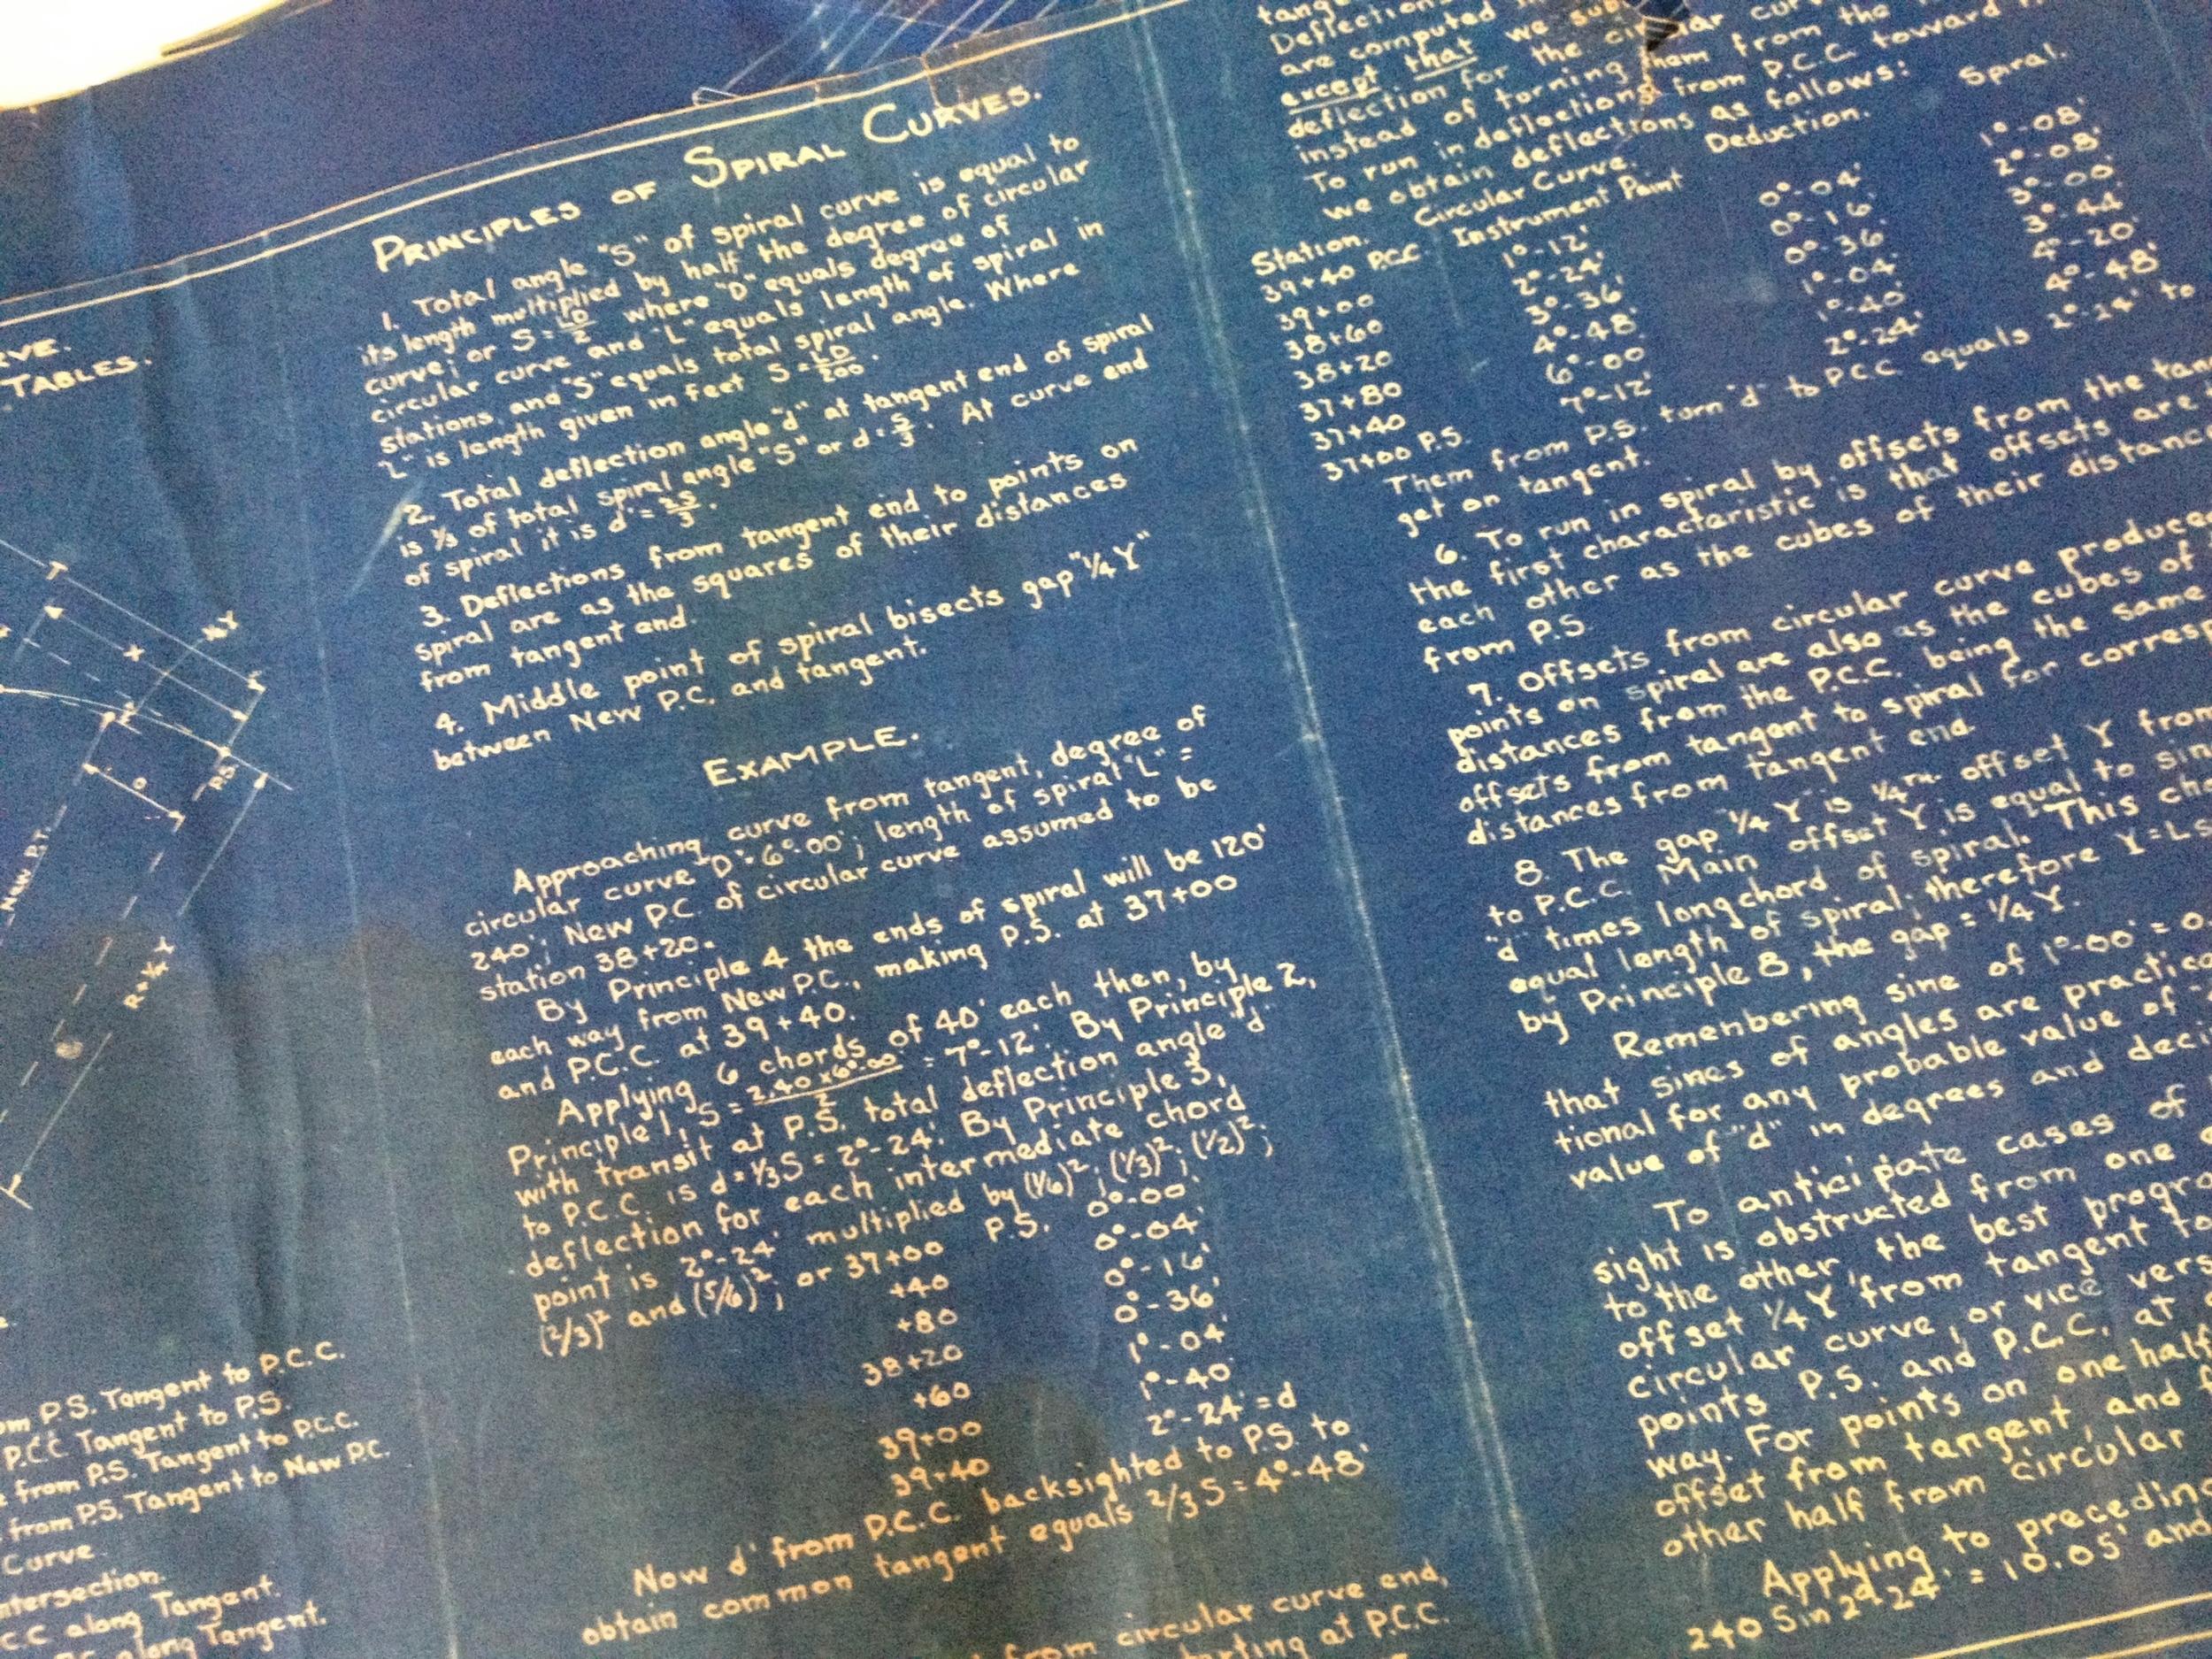 TABLES.
T
X
¼Y
O
P.S.
NEW P.T.
P.S. Tangent to P.C.C.
P.C.C Tangent to P.S.
from P.S. Tangent to P.C.C.
from P.S. Tangent to New P.C.
Curve
C.C along Tangent.
along Tangent.
PRINCIPLES OF SPIRAL CURVES.
1. Total angle "S" of spiral curve is equal to
its length multiplied by half the degree of circular
curve; or S = LD/2 where "D" equals degree of
circular curve and "L" equals length of spiral in
stations, and "S" equals total spiral angle. Where
"L" is length given in feet S = LD/200.
2. Total deflection angle "d" at tangent end of spiral
is ⅓ of total spiral angle "S" or d = S/3. At curve end
of spiral it is d' = 2S/3.
3. Deflections from tangent end to points on
spiral are as the squares of their distances
from tangent end.
4. Middle point of spiral bisects gap "¼Y"
between New P.C. and tangent.
EXAMPLE.
Approaching curve from tangent, degree of
circular curve "D" = 6°-00'; length of spiral "L" =
240'; New P.C. of circular curve assumed to be
station 38+20.
By Principle 4 the ends of spiral will be 120'
each way from New P.C., making P.S. at 37+00
and P.C.C. at 39+40.
Applying 6 chords of 40' each then, by
Principle 1, S = 2.40 x 6°-00'/2 = 7°-12'. By Principle 2,
with transit at P.S. total deflection angle "d"
to P.C.C. is d = ⅓S = 2°-24'. By Principle 3,
deflection for each intermediate chord
point is 2°-24' multiplied by (1/6)²; (1/3)²; (1/2)²;
(2/3)² and (5/6)²; or 37+00 P.S. 0°-00'
+40 0°-04'
+80 0°-16'
38+20 0°-36'
+60 1°-04'
39+00 1°-40'
39+40 2°-24' = d
Now d' from P.C.C. backsighted to P.S. to
obtain common tangent equals 2/3 S = 4°-48'
from circular curve end,
at P.C.C.
are computed
except that we
deflection for the circular
instead of turning them from the
To run in deflections from P.C.C. toward
we obtain deflections as follows:
Station. Circular Curve. Deduction. Spiral.
39+40 P.C.C. Instrument Point
39+00 1°-12' 0°-04' 1°-08'
38+60 2°-24' 0°-16' 2°-08'
38+20 3°-36' 0°-36' 3°-00'
37+80 4°-48' 1°-04' 3°-44'
37+40 6°-00' 1°-40' 4°-20'
37+00 P.S. 7°-12' 2°-24' 4°-48'
Them from P.S. turn "d" to P.C.C equals 2°-24' to
get on tangent.
6. To run in spiral by offsets from the
the first characteristic is that offsets are
each other as the cubes of their
from P.S.
7. Offsets from circular curve
points on spiral are also as the cubes of
distances from the P.C.C. being the same
offsets from tangent to spiral for
distances from tangent end.
8. The gap ¼Y is ¼ offset Y from
to P.C.C. Main offset Y, is equal to
"d" times long chord of spiral. This
equal length of spiral; therefore
by Principle 8, the gap = ¼Y.
Remembering sine of 1°-00' =
that sines of angles are
tional for any probable value of
value of "d" in degrees and
To anticipate cases of
sight is obstructed from one
to the other, the best
offset ¼Y from tangent to
circular curve, or vice
points P.S. and P.C.C. at
way. For points on one half
offset from tangent, and
other half from circular
Applying to
240 Sin 2° 24' = 10.05' and